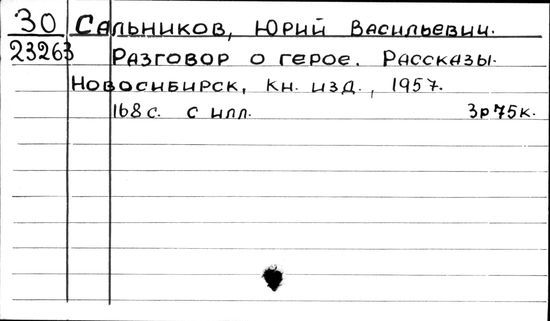 30 Сальников, Юрий Васильевич.
23263 Разговор о герое. Рассказы.
Новосибирск, кн. изд., 1957.
168 с. с илл. 3р75к.